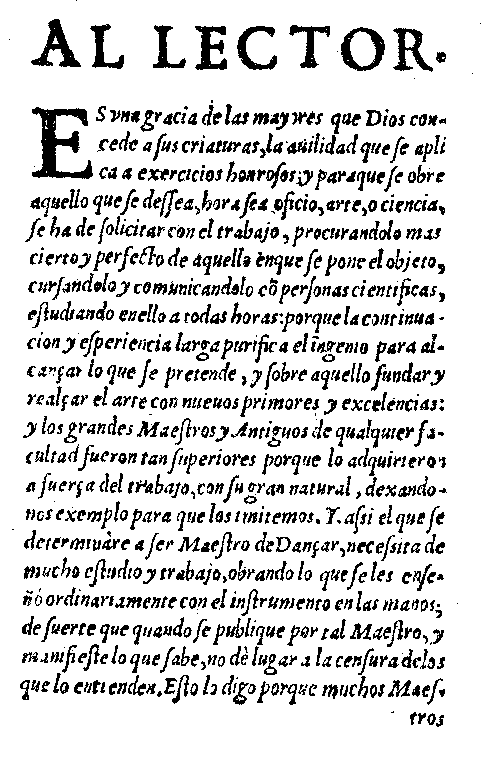 AL LECTOR.
ES vna gracia de las mayores que Dios con-
cede a sus criaturas, la auilidad que se apli
ca a exercicios honrosos; y para que se obre
aquello que se dessea, hora sea oficio, arte, o ciencia,
se ha de solicitar con el trabajo, procurandolo mas
cierto y perfecto de aquello ènque se pone el objeto,
cursandolo y comunicandolo cõ personas cientificas,
estudiando enello a todas horas: porque la continua-
cion y esperiencia larga purifica el ingenio para al-
cançar lo que se pretende, y sobre aquello fundar y
realçar el arte con nueuos primores y excelencias:
y los grandes Maestros y Antiguos de qualquier fa-
cultad fueron tan superiores porque lo adquirieron
a fuerça del trabajo, con su gran natural, dexando-
nos exemplo para que los imitemos. Y assi el que se
determinàre a ser Maestro de Dançar, necessita de
mucho estudio y trabajo, obrando lo que se les ense-
ñò ordinariamente con el instrumento en las manos;
de suerte que quando se publique por tal Maestro, y
manifieste lo que sabe, no dè lugar a la censura delos
que lo entienden. Esto lo digo porque muchos Maes-
tros